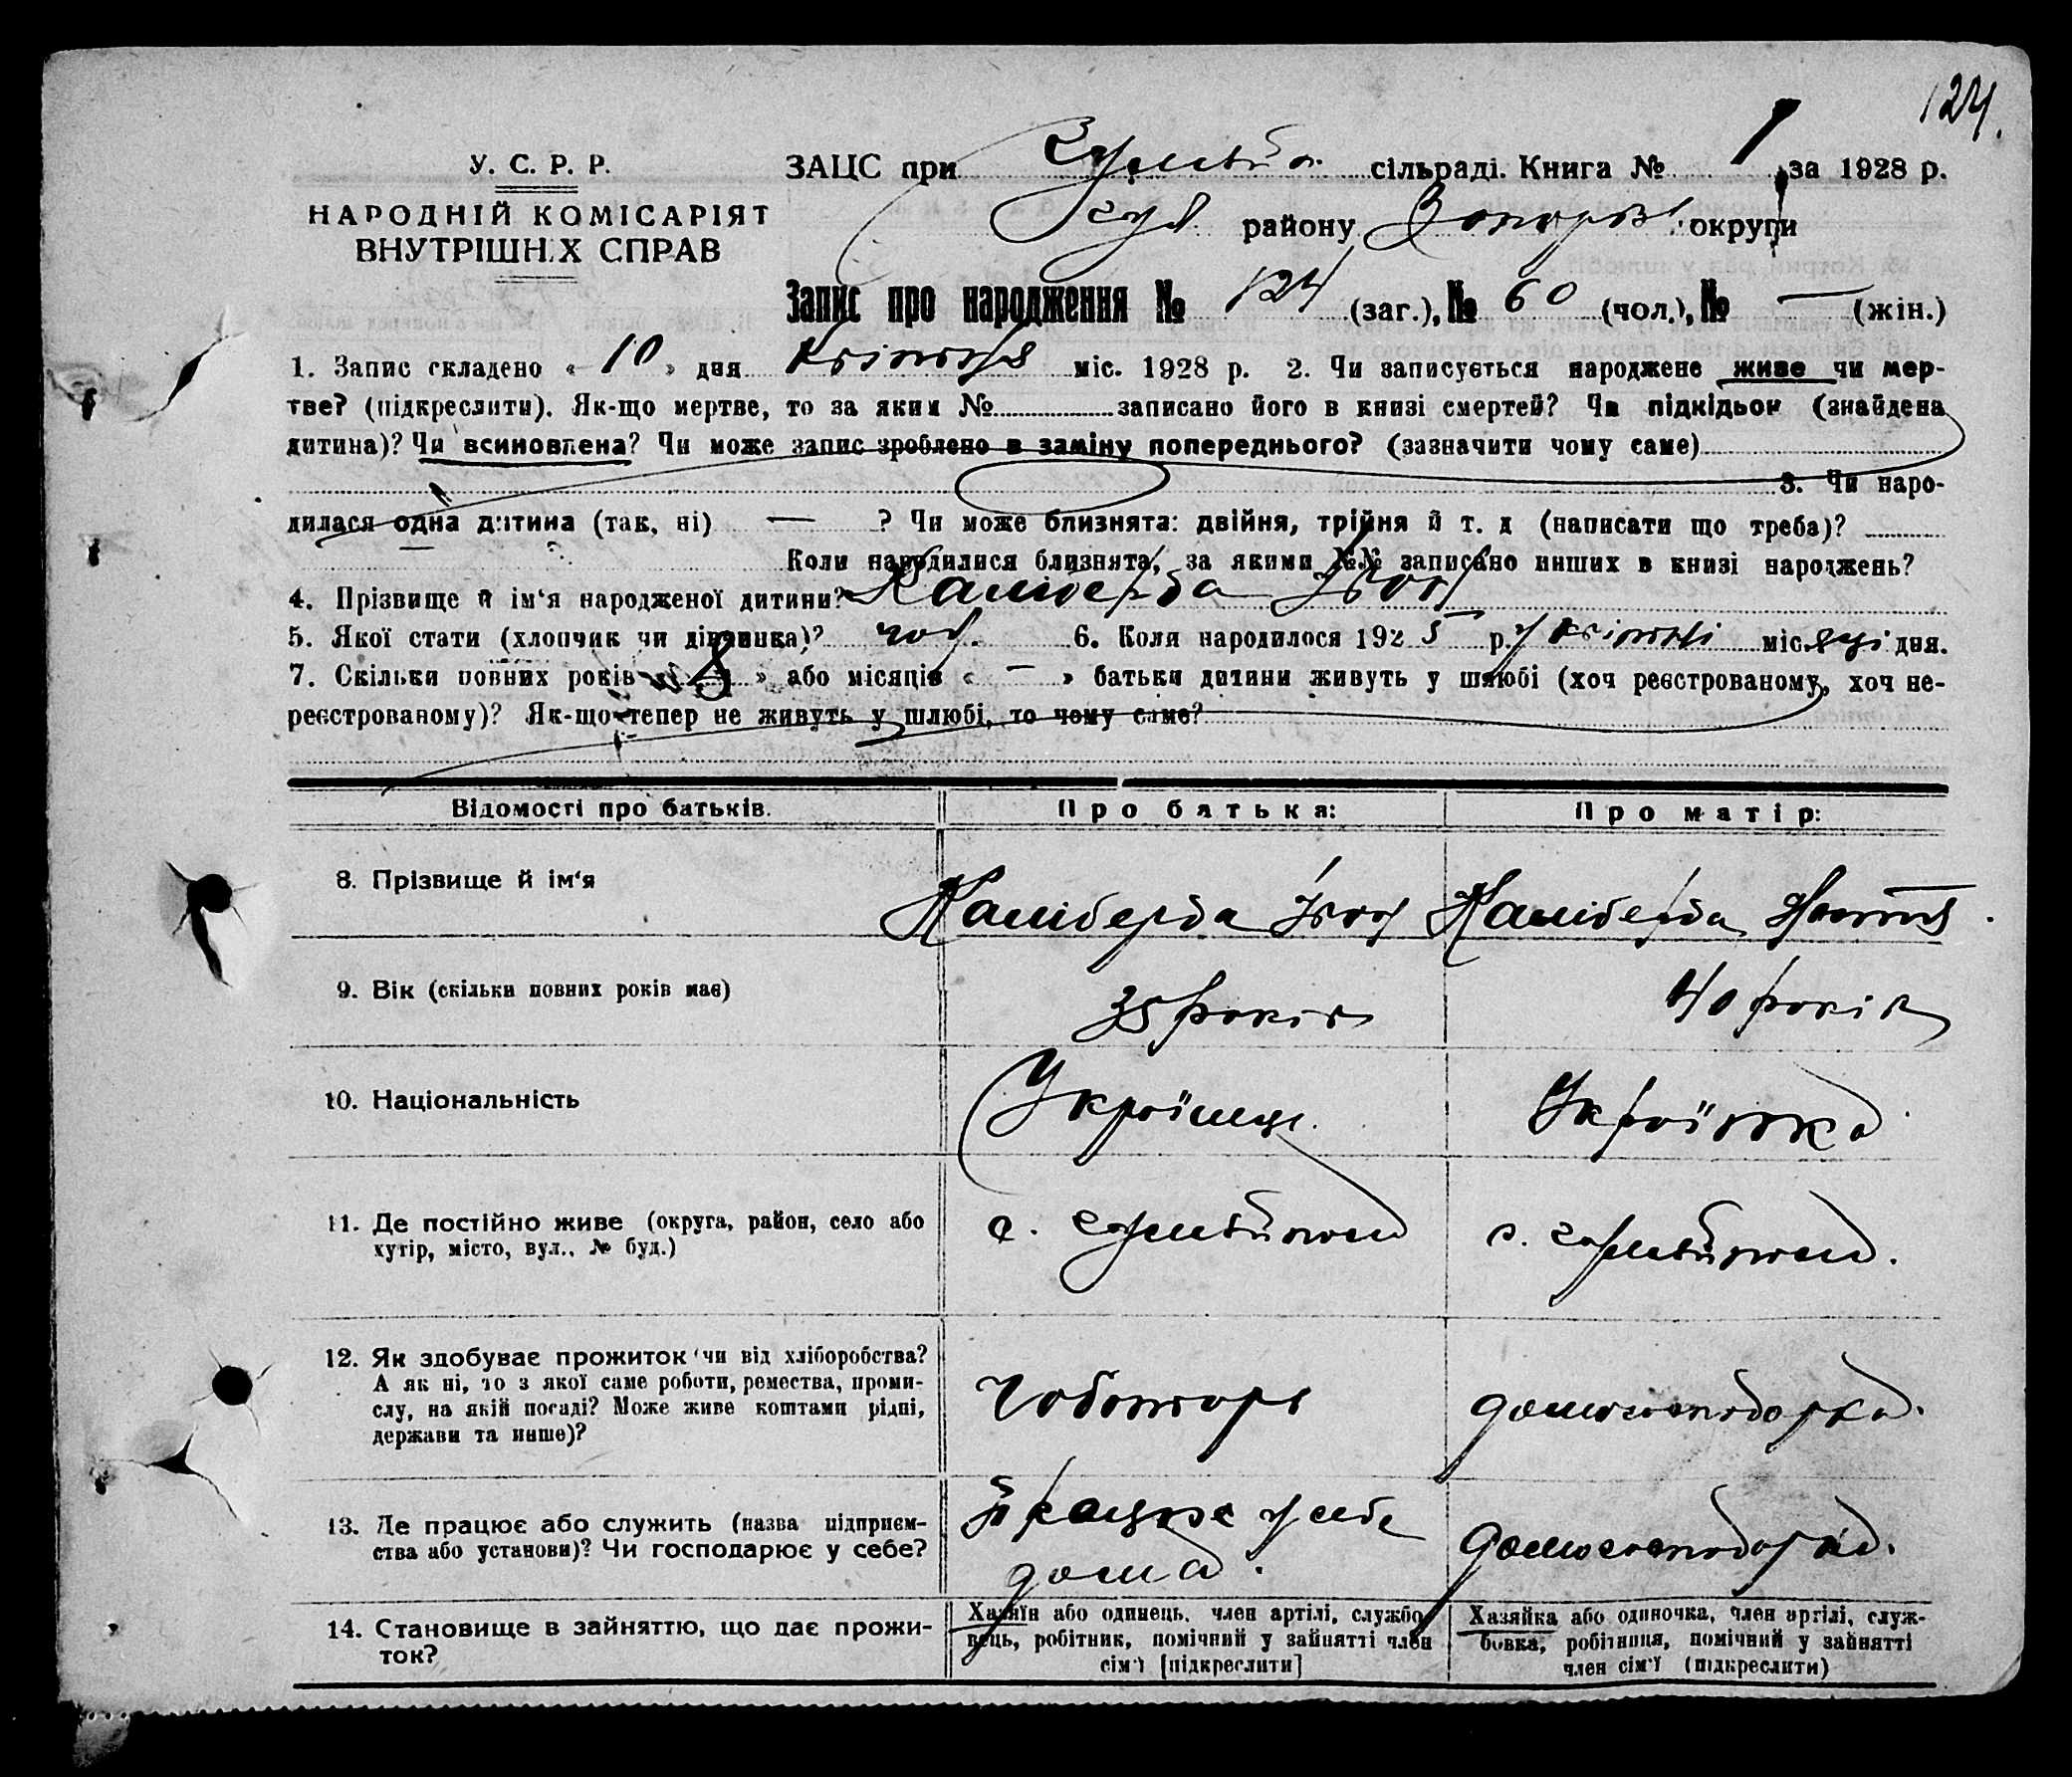 124.
У. С. Р. Р.
НАРОДНІЙ КОМІСАРІЯТ
ВНУТРІШНІХ СПРАВ
ЗАЦС при сільраді. Книга № 1 за 1928 р.
району округи
Запис про народження № 124 (заг.), № 60 (чол.), № — (жін.)
1. Запис складено « 10 » дня квітня міс. 1928 р. 2. Чи записується народжене живе чи мер-
тве? (підкреслити). Як-що мертве, то за яким № записано його в книзі смертей? Чи підкідьок (знайдена
дитина)? Чи всиновлена? Чи може запис зроблено в заміну попереднього? (зазначити чому саме)
3. Чи наро-
дилася одна дитина (так, ні) — ? Чи може близнята: двійня, трійня й т. д (написати що треба)?
Коли народилися близнята, за якими №№ записано инших в книзі народжень?
4. Прізвище й ім'я народженої дитини? Каліберда Іван
5. Якої стати (хлопчик чи дівчинка)? чол. 6. Коли народилося 192 р. міс. дня.
7. Скільки повних років « 8 » або місяців « — » батьки дитини живуть у шлюбі (хоч реєстрованому, хоч не-
реєстрованому)? Як-що тепер не живуть у шлюбі, то чому саме?
Відомості про батьків. Про батька: Про матір:
8. Прізвище й ім'я Каліберда Іван Каліберда
9. Вік (скільки повних років має) 35 років 40 років
10. Національність Українець Українка
11. Де постійно живе (округа, район, село або
хутір, місто, вул., № буд.) с. с.
12. Як здобуває прожиток чи від хліборобства?
А як ні, то з якої саме роботи, ремества, проми-
слу, на якій посаді? Може живе коштами рідні,
держави та инше)? Чоботарь домогосподарка.
13. Де працює або служить (назва підприєм-
ства або установи)? Чи господарює у себе? Працює у себе
дома. домогосподарка.
14. Становище в зайняттю, що дає прожи-
ток?
Хазяїн або одинець, член артілі, службо-
вець, робітник, помічний у зайнятті член
сім'ї [підкреслити]
Хазяйка або одиночка, член артілі, служ-
бовка, робітниця, помічний у зайнятті
член сім'ї (підкреслити)